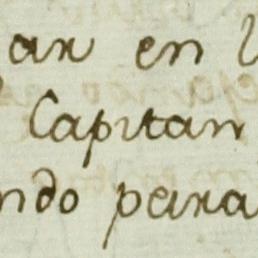 ar en l
Capitan
ndo para